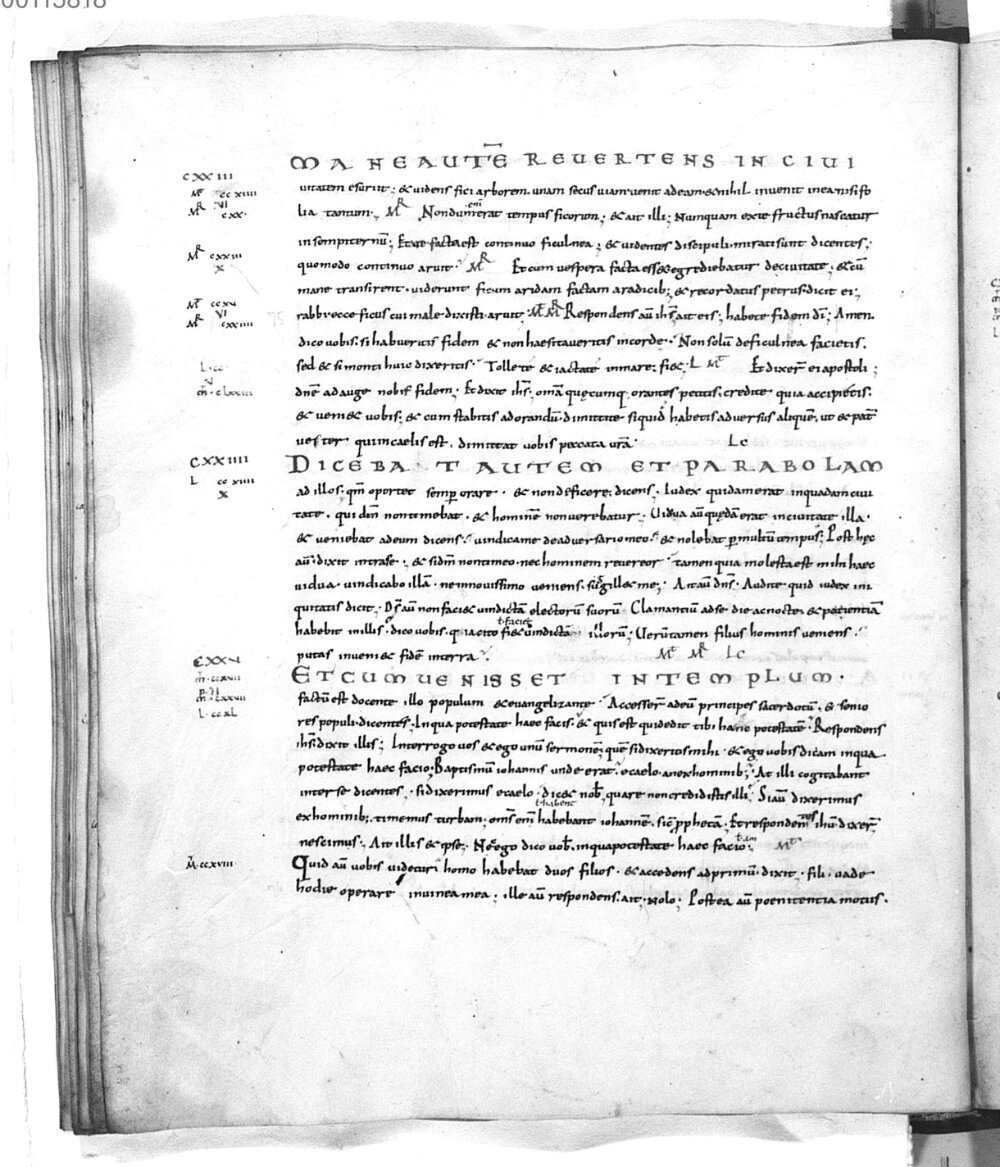 00113818
MANE AUTĒ REUERTENS IN CIUI
CXXIII
uitatem esuriit; & uidens fici arborem unam secus uiam uenit ad eam & nihil inuenit in ea nisi fo
Mᵗ ccxiiii
lia tantum. MR Nondum enī erat tempus ficorum; & ait illi; Numquam ex te fructus nascatur
MR VI cxx.
in sempiternū; Et arefacta est continuo ficulnea; & uidentes discipuli mirati sunt dicentes;
quomodo continuo aruit. MR Et cum uespera facta ess& egrediebatur de ciuitate; & cū
MR cxxiii
x
mane transirent uiderunt ficum aridam factam a radicib; & recordatus petrus dicit ei;
rabbi ecce ficus cui male dixisti aruit. Mᵗ MR Respondens aū ihs ait eis; habete fidem dī; Amen
Mᵗ ccxv
MR VI cxxiiii
dico uobis. si habueritis fidem & non haesitaueritis in corde. Non solū de ficulnea facietis.
sed & si monti huic dixeritis. Tollete & iactate in mare; fi&; L Mᵗ Et dixerˉ ei apostoli;
L. cc
dnē adauge nobis fidem. Et dixit ihs. omā quęcumq; orantes petitis; credite quia accipietis.
& ueni& uobis; & cum stabitis ad orandū dimittite si quid habetis aduersus aliquē. ut & patˉ
uester qui in caelis est. dimittat uobis peccata urā. Lc
CXXIIII
DICEBAT AUTEM ET PARABOLAM
L
x
ad illos. qm̄ oportet semp orare. & non deficere; dicens. Iudex quidam erat in quadam ciui
tate. qui dm̄ non timebat. & hominē non uerebatur; Uidua aū quędā erat in ciuitate illa.
& ueniebat ad eum dicens. uindica me de aduersario meo. & nolebat p multū tempus; Post hęc
aū dixit intra se; & si dm̄ non timeo. nec hominem reuereor tamen quia molesta est mihi haec
uidua. uindicabo illā. ne in nouissimo ueniens. sugill& me; Ait aū dns. Audite quid iudex ini
quitatis dicit. Ds aū non faci& uindictā electorū suorū Clamantiū ad se die ac nocte & patientiā
ł faciet
habebit in illis. dico uobis. quia cito fi& uindictā illorū; Uerūtamen filius hominis ueniens.
putas inueni& fidē in terra. Mᵗ MR Lc
CXXV
ET CUM UENISSET IN TEMPLUM.
m̄. ccxvii
factū est docente illo populum & euangelizante Accesserˉ ad eū principes sacerdotū. & senio
L. ccxL
res populi. dicentes. In qua potestate haec facis. & quis est qui dedit tibi hanc potestatē. Respondens
ihs. dixit illis; Interrogo uos & ego unū sermonē; quē si dixeritis mihi. & ego uobis dicam in qua
potestate haec facio. Baptismū iohannis unde erat. e caelo. an ex hominib; At illi cogitabant
inter se dicentes. si dixerimus e caelo dic& nob; quare non credidistis illi. Si aū dixerimus
ł habent
ex hominib; timemus turbam; omˉs enī habebant iohannē. sic̄ pphetā. Et respondentes ihū dixerˉ
nescimus; Ait illis & ipse; Nec ego dico uob. in qua potestate haec facio. Mᵗ
M̄. ccxviii
Quid aū uobis uidetur homo habebat duos filios. & accedens ad primū dixit. fili. uade
hodie operare in uinea mea; ille aū respondens. ait. nolo; Postea aū poenitentia motus.